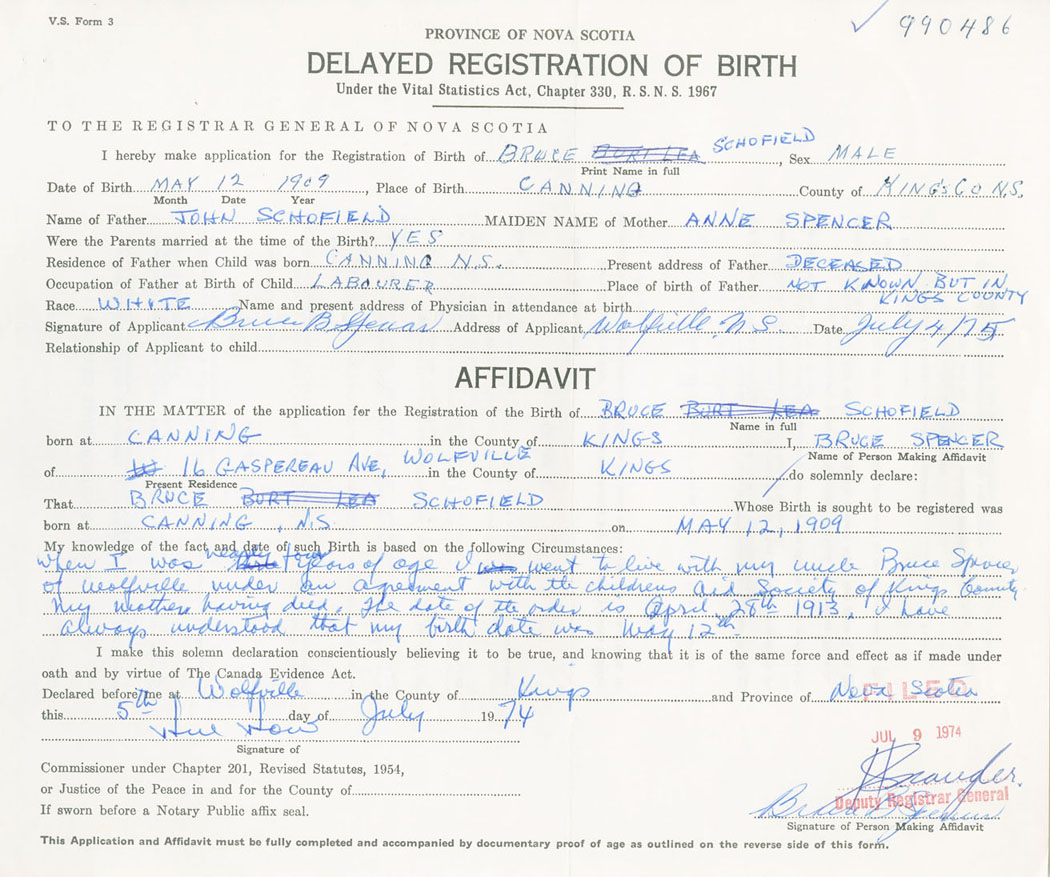 V.S. Form 3
✓ 990486
PROVINCE OF NOVA SCOTIA
DELAYED REGISTRATION OF BIRTH
Under the Vital Statistics Act, Chapter 330, R.S.N.S. 1967
TO THE REGISTRAR GENERAL OF NOVA SCOTIA
I hereby make application for the Registration of Birth of BRUCE BURT LEA SCHOFIELD, Sex MALE
Print Name in full
Date of Birth MAY 12 1909, Place of Birth CANNING County of KINGS CO N.S.
Month Date Year
Name of Father JOHN SCHOFIELD MAIDEN NAME of Mother ANNE SPENCER
Were the Parents married at the time of the Birth? YES
Residence of Father when Child was born CANNING N.S. Present address of Father DECEASED
Occupation of Father at Birth of Child LABOURER Place of birth of Father NOT KNOWN BUT IN KINGS COUNTY
Race WHITE Name and present address of Physician in attendance at birth
Signature of Applicant Bruce B Spencer Address of Applicant Wolfville N.S. Date July 4/75
Relationship of Applicant to child
AFFIDAVIT
IN THE MATTER of the application for the Registration of the Birth of BRUCE BURT LEA SCHOFIELD
Name in full
born at CANNING in the County of KINGS I, BRUCE SPENCER
Name of Person Making Affidavit
of 16 GASPEREAU AVE, WOLFVILLE in the County of KINGS do solemnly declare:
Present Residence
That BRUCE BURT LEA SCHOFIELD Whose Birth is sought to be registered was
born at CANNING, N.S. on MAY 12, 1909
My knowledge of the fact and date of such Birth is based on the following Circumstances:
When I was nearly four years of age I went to live with my uncle Bruce Spencer
of Wolfville under an agreement with the childrens Aid Society of Kings County
My mother having died. The date of the order is April 28th 1913. I have
always understood that my birth date was May 12th.
I make this solemn declaration conscientiously believing it to be true, and knowing that it is of the same force and effect as if made under
oath and by virtue of The Canada Evidence Act.
Declared before me at Wolfville in the County of Kings and Province of Nova Scotia
FILED
this 5th day of July 1974
JUL 9 1974
Signature of
Commissioner under Chapter 201, Revised Statutes, 1954,
or Justice of the Peace in and for the County of
Deputy Registrar General
If sworn before a Notary Public affix seal.
Bruce B Spencer
Signature of Person Making Affidavit
This Application and Affidavit must be fully completed and accompanied by documentary proof of age as outlined on the reverse side of this form.